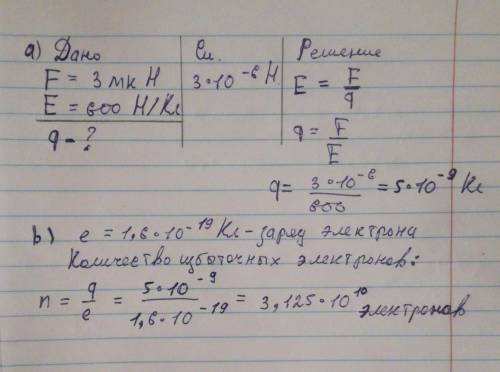 а) Дано Си. Решение
F = 3 мк Н 3·10⁻⁶ Н E = F/q
E = 600 Н/Кл
q - ? q = F/E
q = 3·10⁻⁶/600 = 5·10⁻⁹ Кл
b) e = 1,6·10⁻¹⁹ Кл - заряд электрона
Количество избыточных электронов:
n = q/e = 5·10⁻⁹/1,6·10⁻¹⁹ = 3,125·10¹⁰ электронов